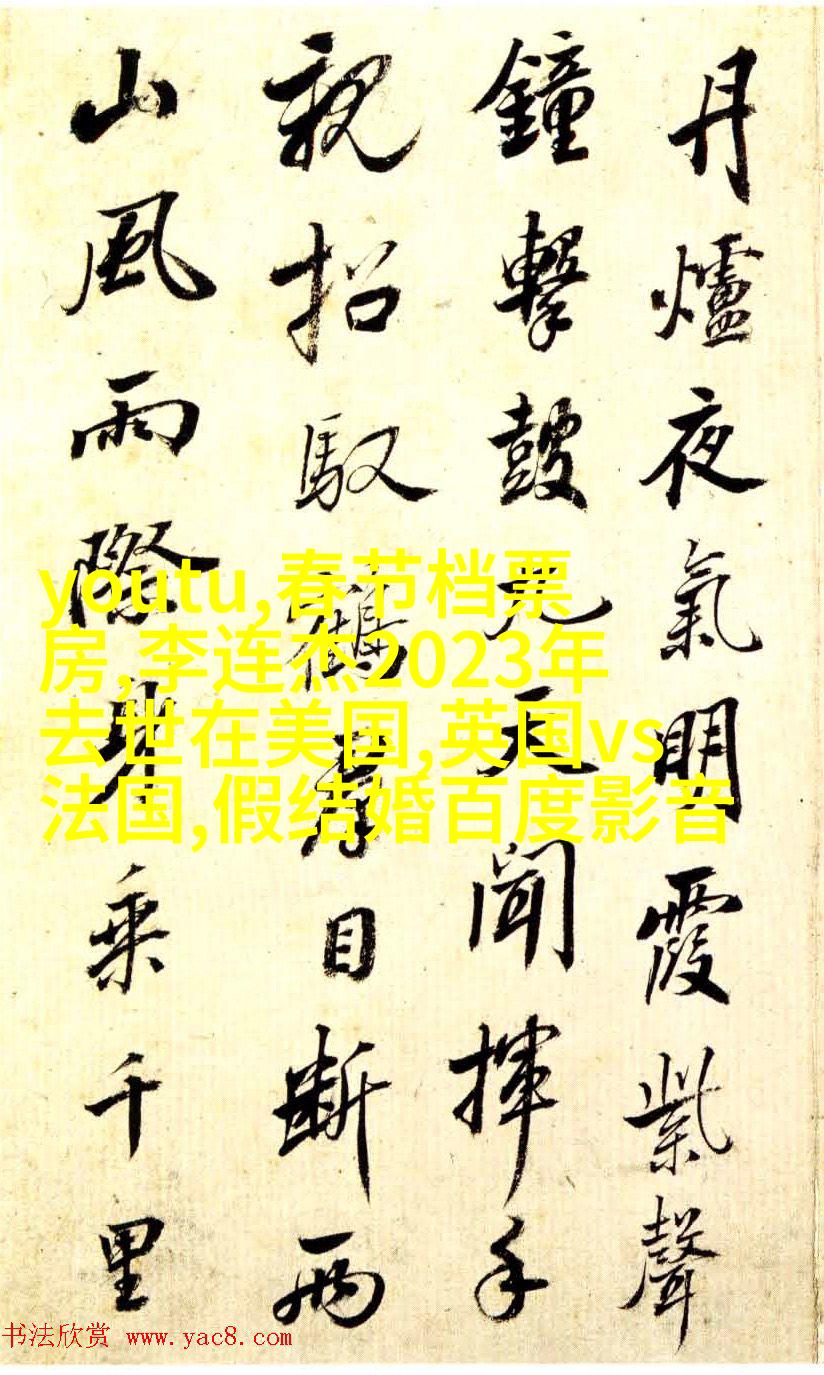 丹爐夜氣明霞紫聲
鐘擊鼓元天聞揮手
親招馭鶴群目斷兩
山風雨際身乘千里
youtu,春节档票
房,李连杰2023年
去世在美国,英国vs
法国,假结婚百度影音
书法欣赏 www.yac8.com